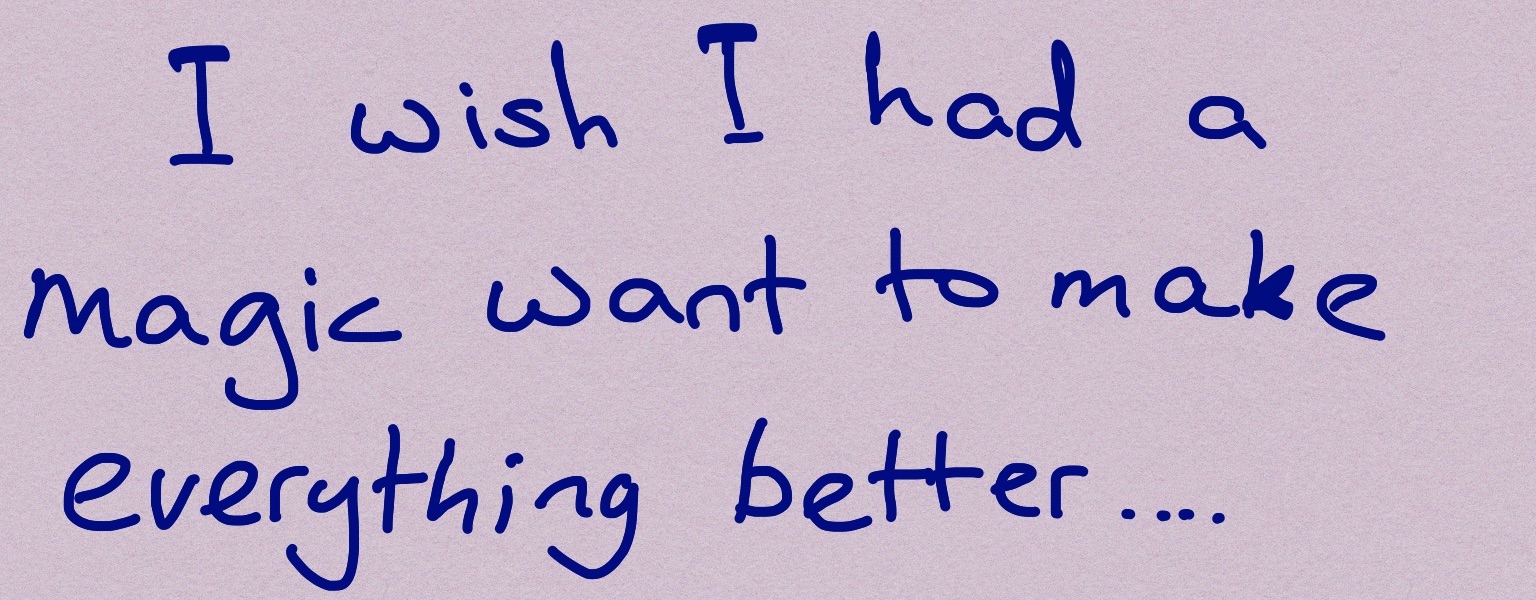 I wish I had a
magic want to make
everything better....